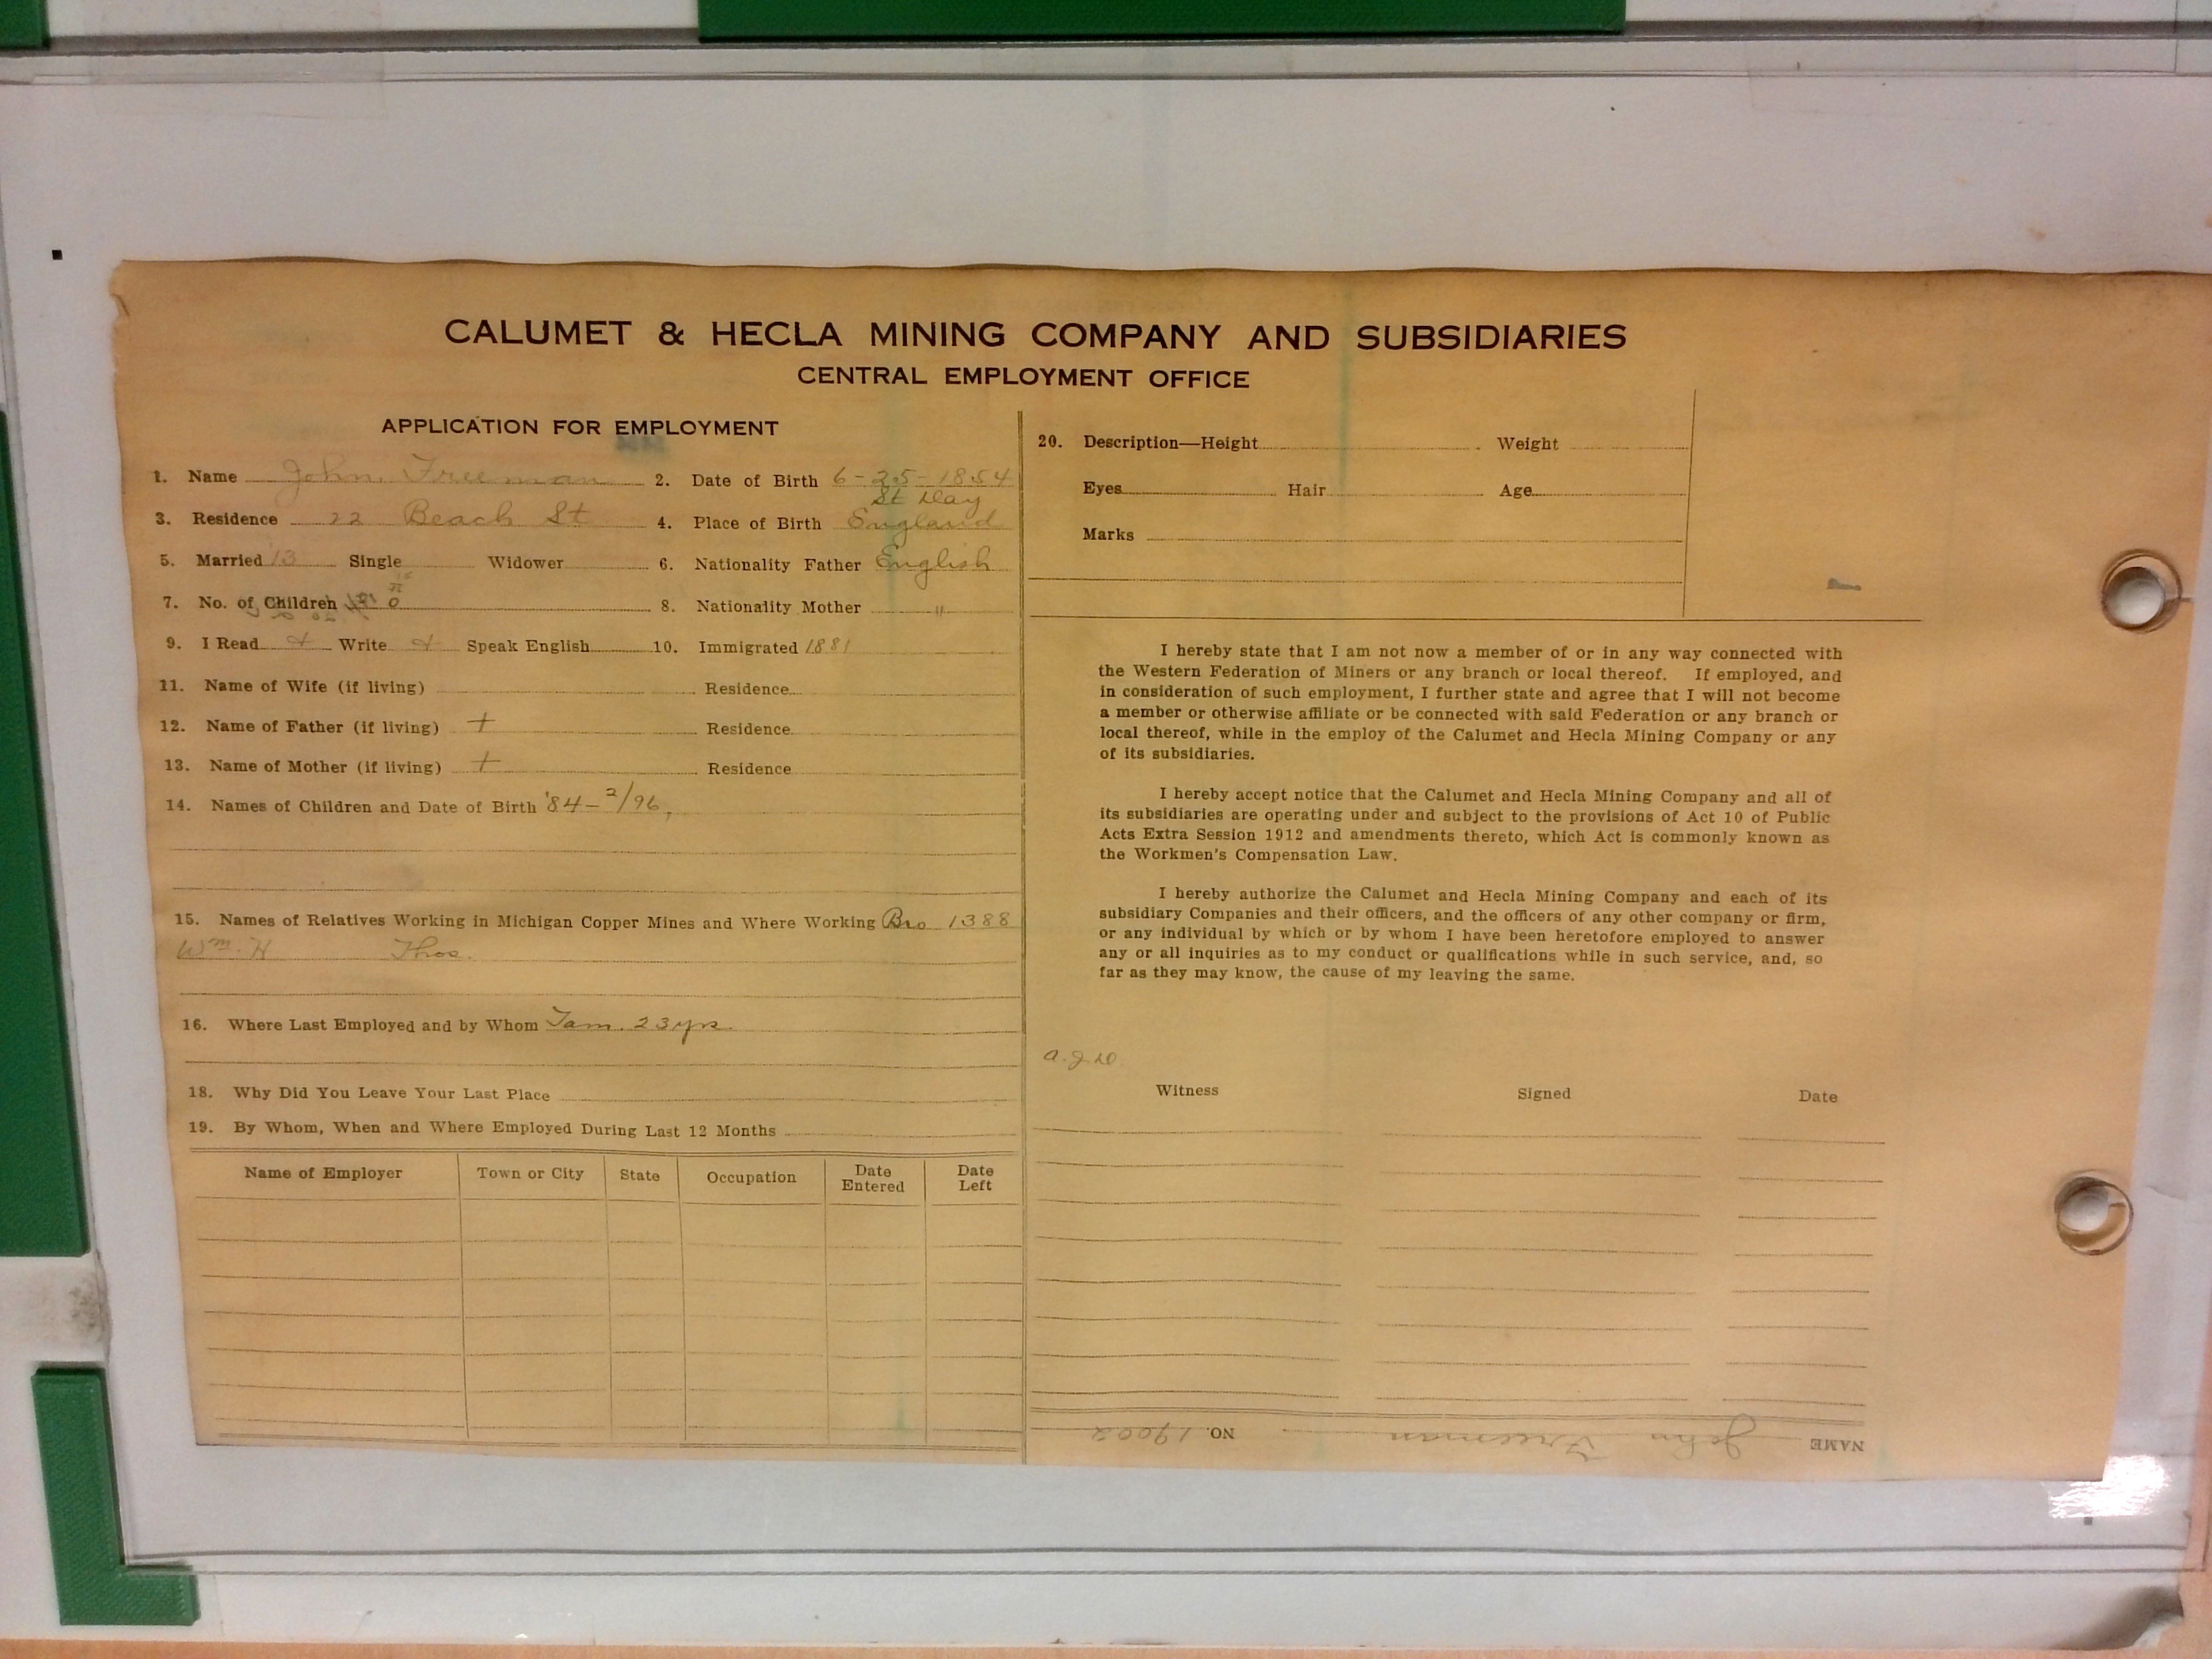 CALUMET & HECLA MINING COMPANY AND SUBSIDIARIES
CENTRAL EMPLOYMENT OFFICE
APPLICATION FOR EMPLOYMENT
1. Name John Freeman 2. Date of Birth 6-25-1854
3. Residence 22 Beach St 4. Place of Birth St Day England
5. Married 13 Single Widower 6. Nationality Father English
7. No. of Children 0 8. Nationality Mother "
9. I Read Write Speak English 10. Immigrated 1881
11. Name of Wife (if living) Residence
12. Name of Father (if living) + Residence
13. Name of Mother (if living) + Residence
14. Names of Children and Date of Birth '84-2/96,
15. Names of Relatives Working in Michigan Copper Mines and Where Working Bro 1388
Wm. H Thos.
16. Where Last Employed and by Whom Tam. 23 yrs.
18. Why Did You Leave Your Last Place
19. By Whom, When and Where Employed During Last 12 Months
Name of Employer Town or City State Occupation Date Entered Date Left
20. Description—Height Weight
Eyes Hair Age
Marks
I hereby state that I am not now a member of or in any way connected with
the Western Federation of Miners or any branch or local thereof. If employed, and
in consideration of such employment, I further state and agree that I will not become
a member or otherwise affiliate or be connected with said Federation or any branch or
local thereof, while in the employ of the Calumet and Hecla Mining Company or any
of its subsidiaries.
I hereby accept notice that the Calumet and Hecla Mining Company and all of
its subsidiaries are operating under and subject to the provisions of Act 10 of Public
Acts Extra Session 1912 and amendments thereto, which Act is commonly known as
the Workmen's Compensation Law.
I hereby authorize the Calumet and Hecla Mining Company and each of its
subsidiary Companies and their officers, and the officers of any other company or firm,
or any individual by which or by whom I have been heretofore employed to answer
any or all inquiries as to my conduct or qualifications while in such service, and, so
far as they may know, the cause of my leaving the same.
Witness Signed Date
NAME John Freeman NO. 19002